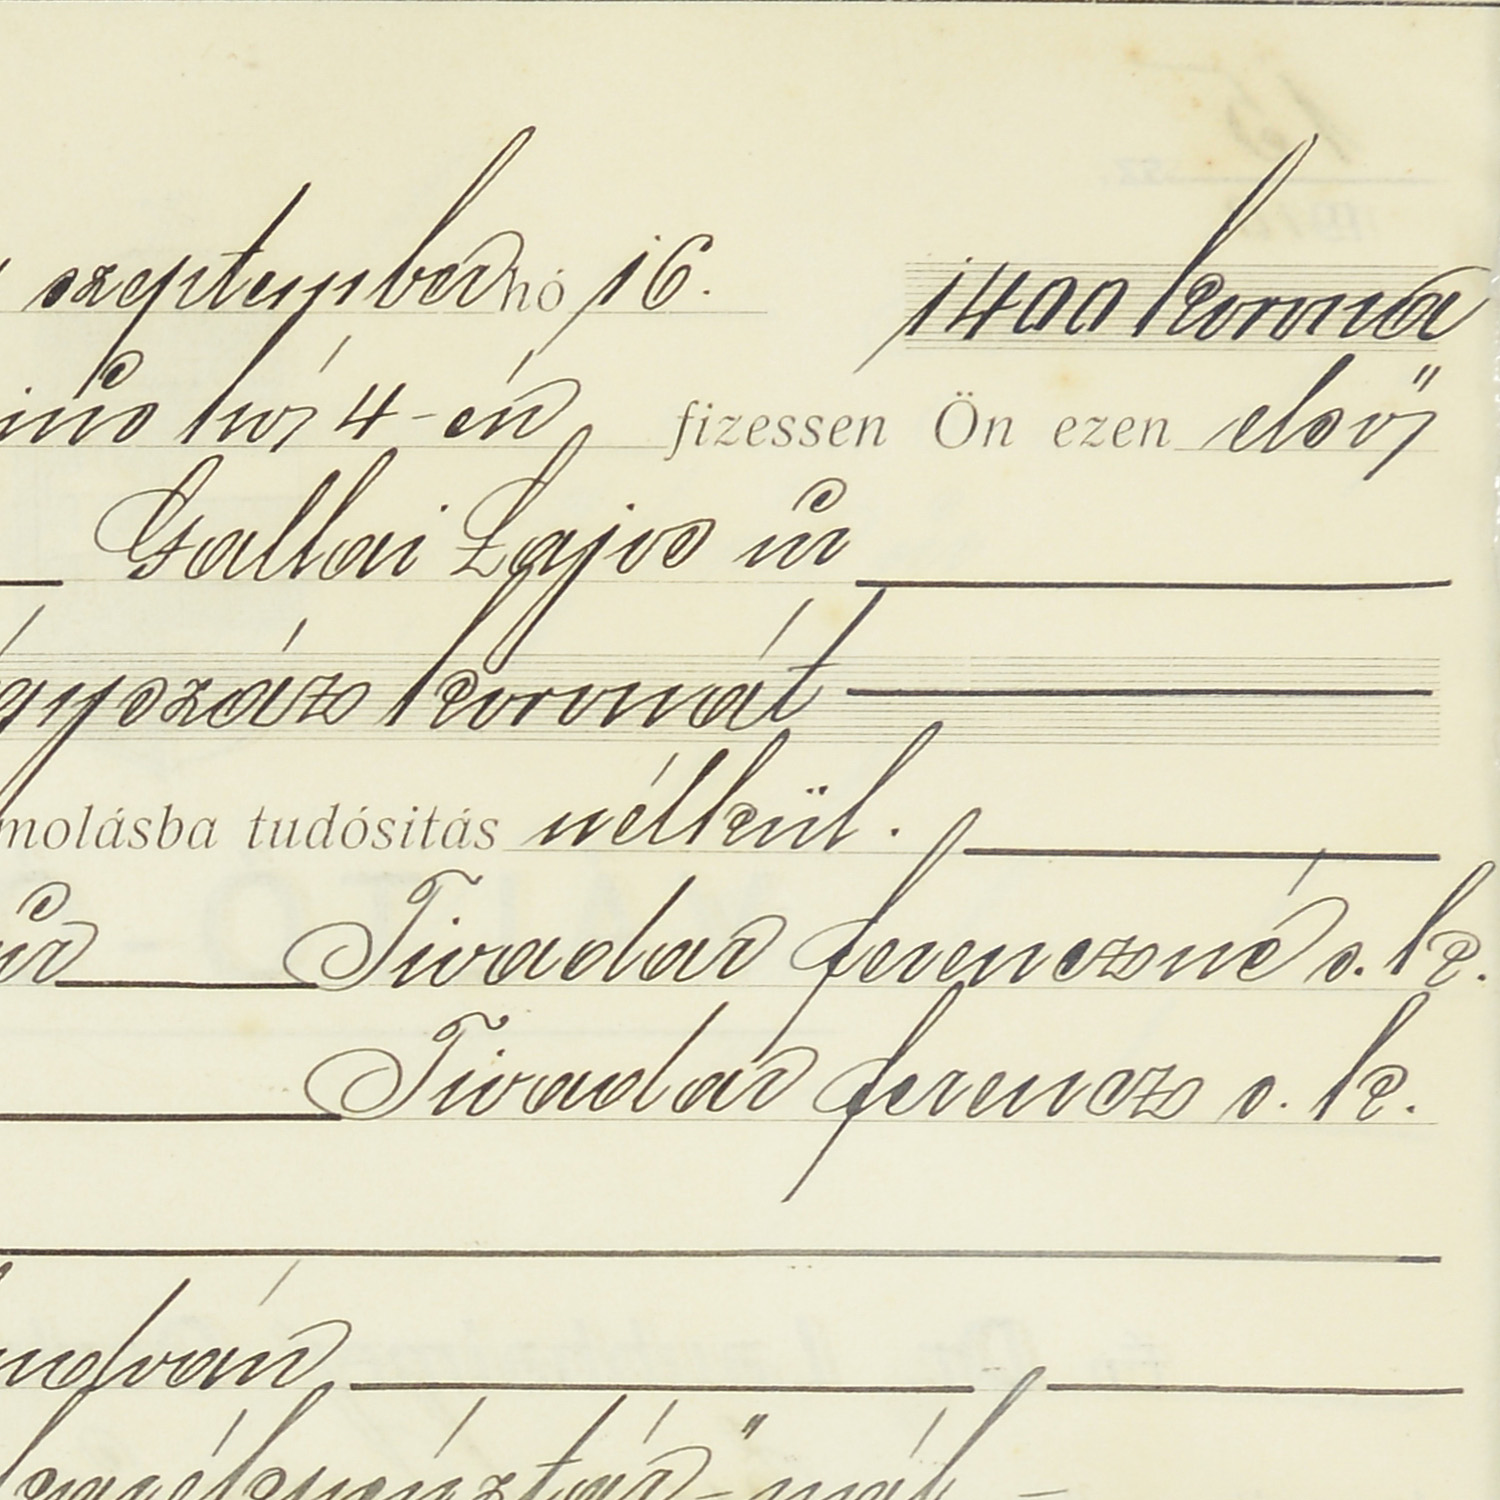 szeptember hó 16. 1400 korona
hó 4-én fizessen Ön ezen első
Gallai Lajos úr
koronát
tudósitás nélkül.
úr Tivadar ferenczné s. k.
Tivadar ferencz s. k.